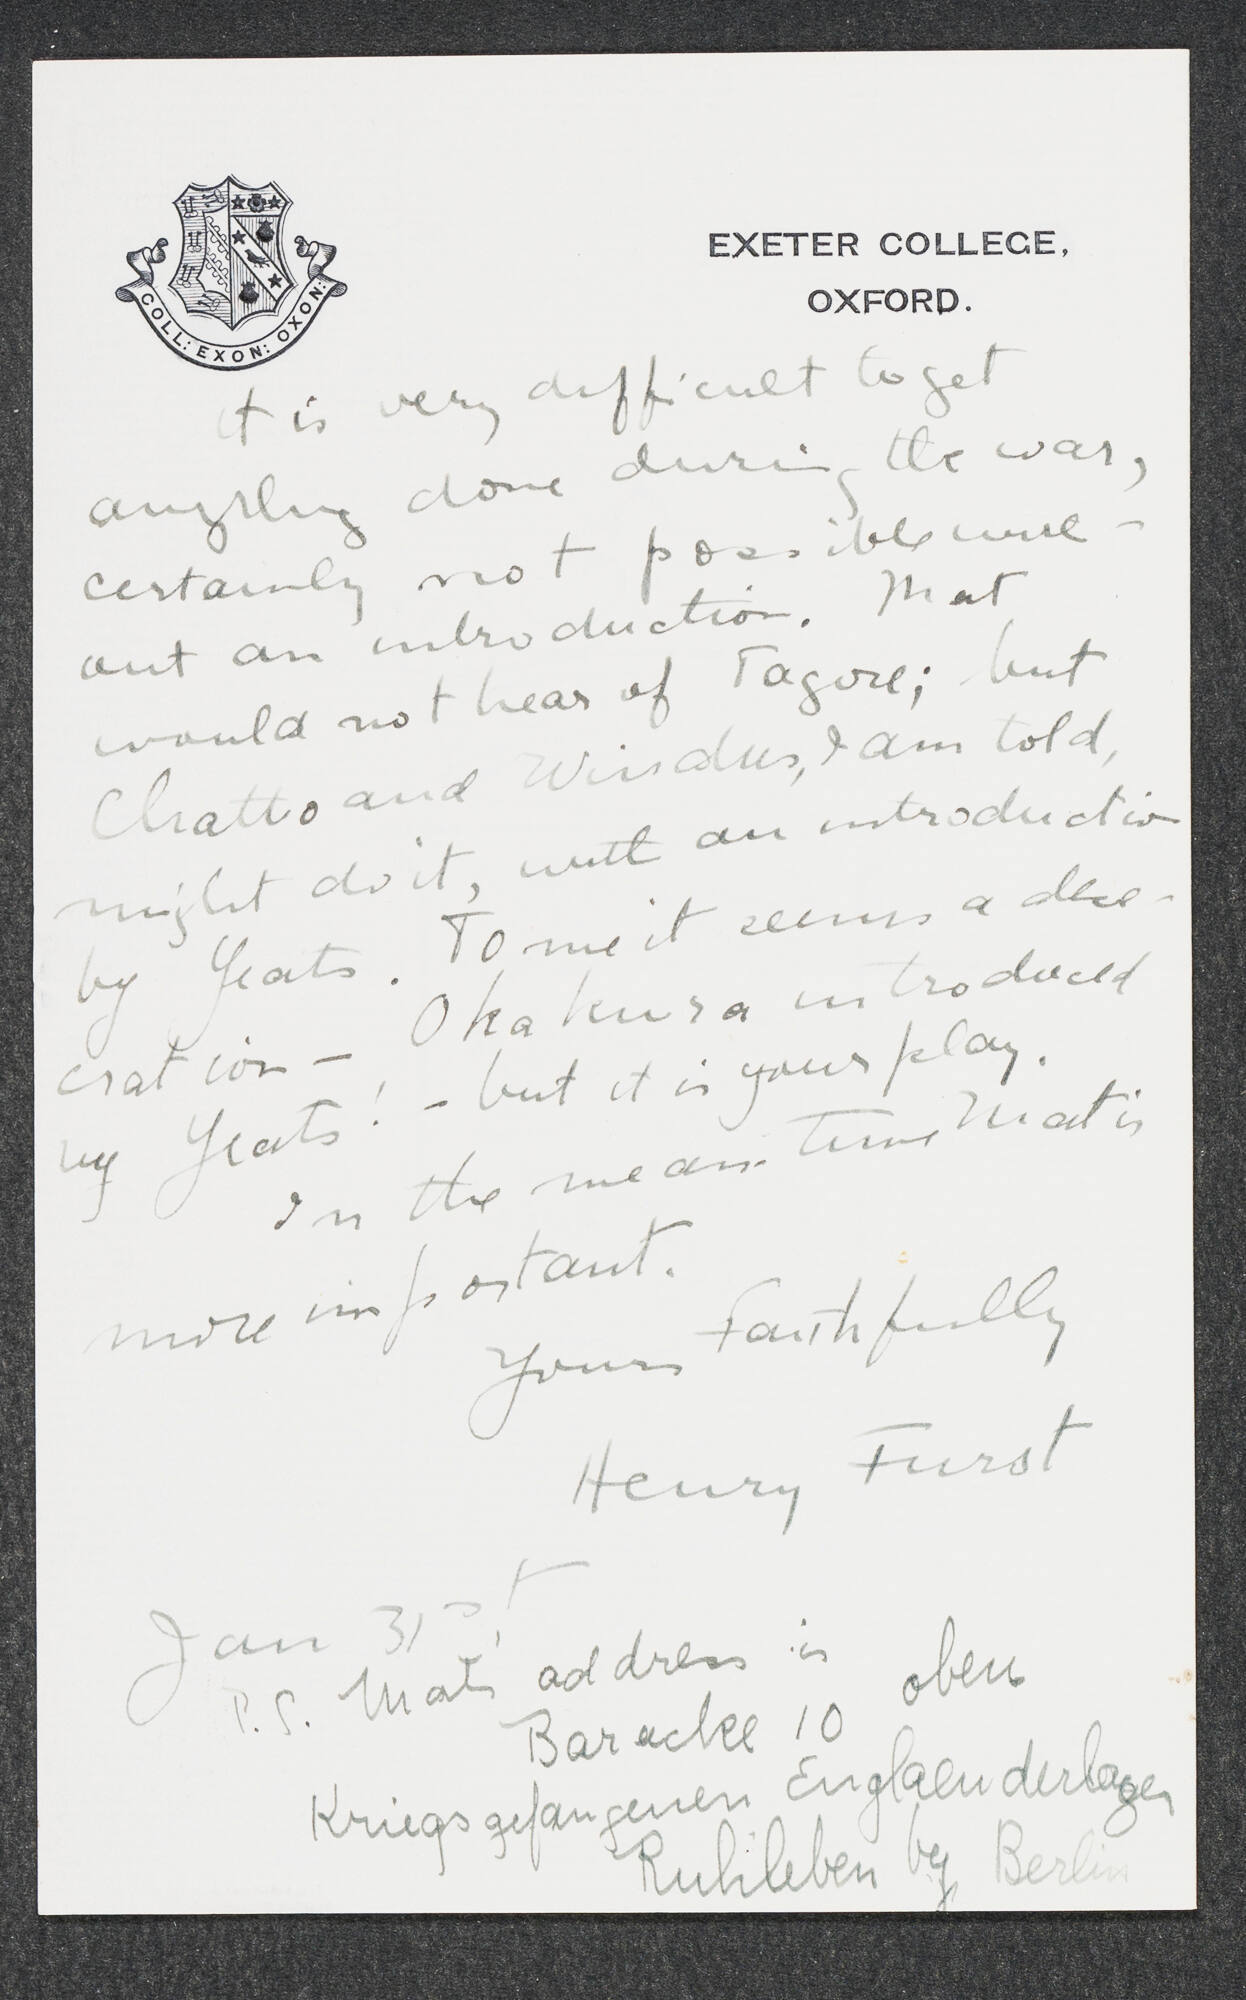 COLL: EXON: OXON:
EXETER COLLEGE,
OXFORD.
It is very difficult to get
anything done during the war,
certainly not possible with-
out an introduction. Mat
would not hear of Tagore; but
Chatto and Windus, I am told,
might do it, with an introduction
by Yeats. To me it seems a dese-
cration – Okakura introduced
by Yeats! – but it is your play.
In the mean-time Mat is
more important.
Yours Faithfully
Henry Furst
Jan 31st
P.S. Mat's address is
Baracke 10 oben
Kriegsgefangenen Englaenderlager
Ruhleben by Berlin